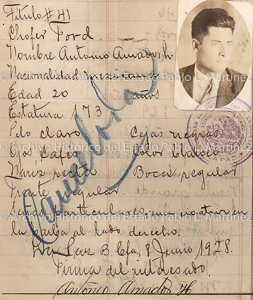 Título # 41
Chofer Ford
Nombre Antonio Amador h.
Nacionalidad mexicana
Edad 20 años
Estatura 173
Pelo claro Cejas negras
Ojos Cafés Color blanco
Nariz recta Boca regular
Frente regular
Señas particulares: una cicatriz en
la barba al lado derecho.
B. Cfa, 8 Junio 1928.
Firma del interesado.
Antonio Amador h.
Cancelada
Archivo Histórico del Estado Pablo L. Martínez